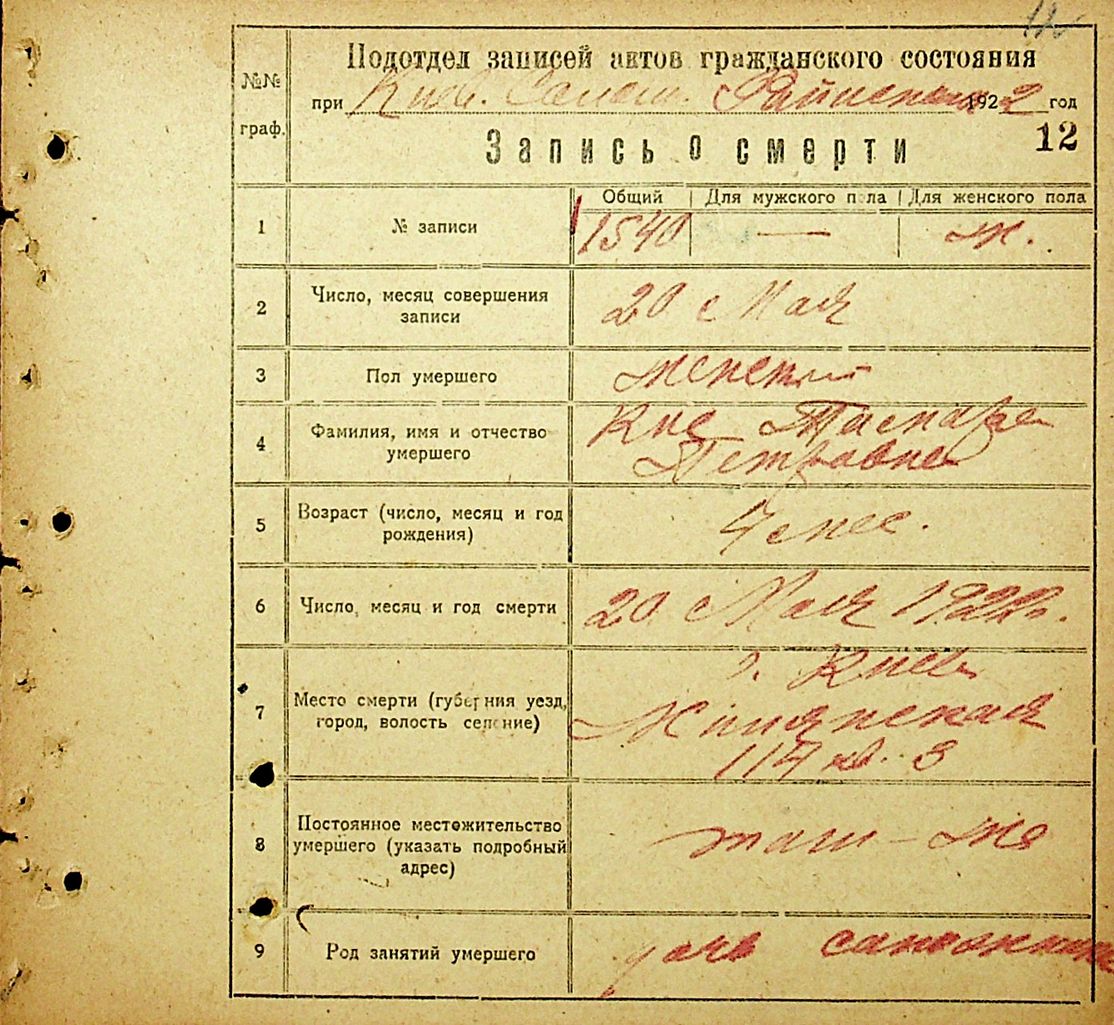 Подотдел записей актов гражданского состояния
№№
граф.
при Киев. 1922 год
12
Запись о смерти
Общий Для мужского пола Для женского пола
1 № записи 1540 — ж.
2 Число, месяц совершения
записи
20 Мая
3 Пол умершего женский
4 Фамилия, имя и отчество
умершего
Тамара
Петровна
5 Возраст (число, месяц и год
рождения)
мес.
6 Число, месяц и год смерти 20 Мая 1922 г.
7 Место смерти (губерния уезд,
город, волость селение)
г. Киев
Жилянская
114 кв. 3
8 Постоянное местожительство
умершего (указать подробный
адрес)
там-же
9 Род занятий умершего дочь